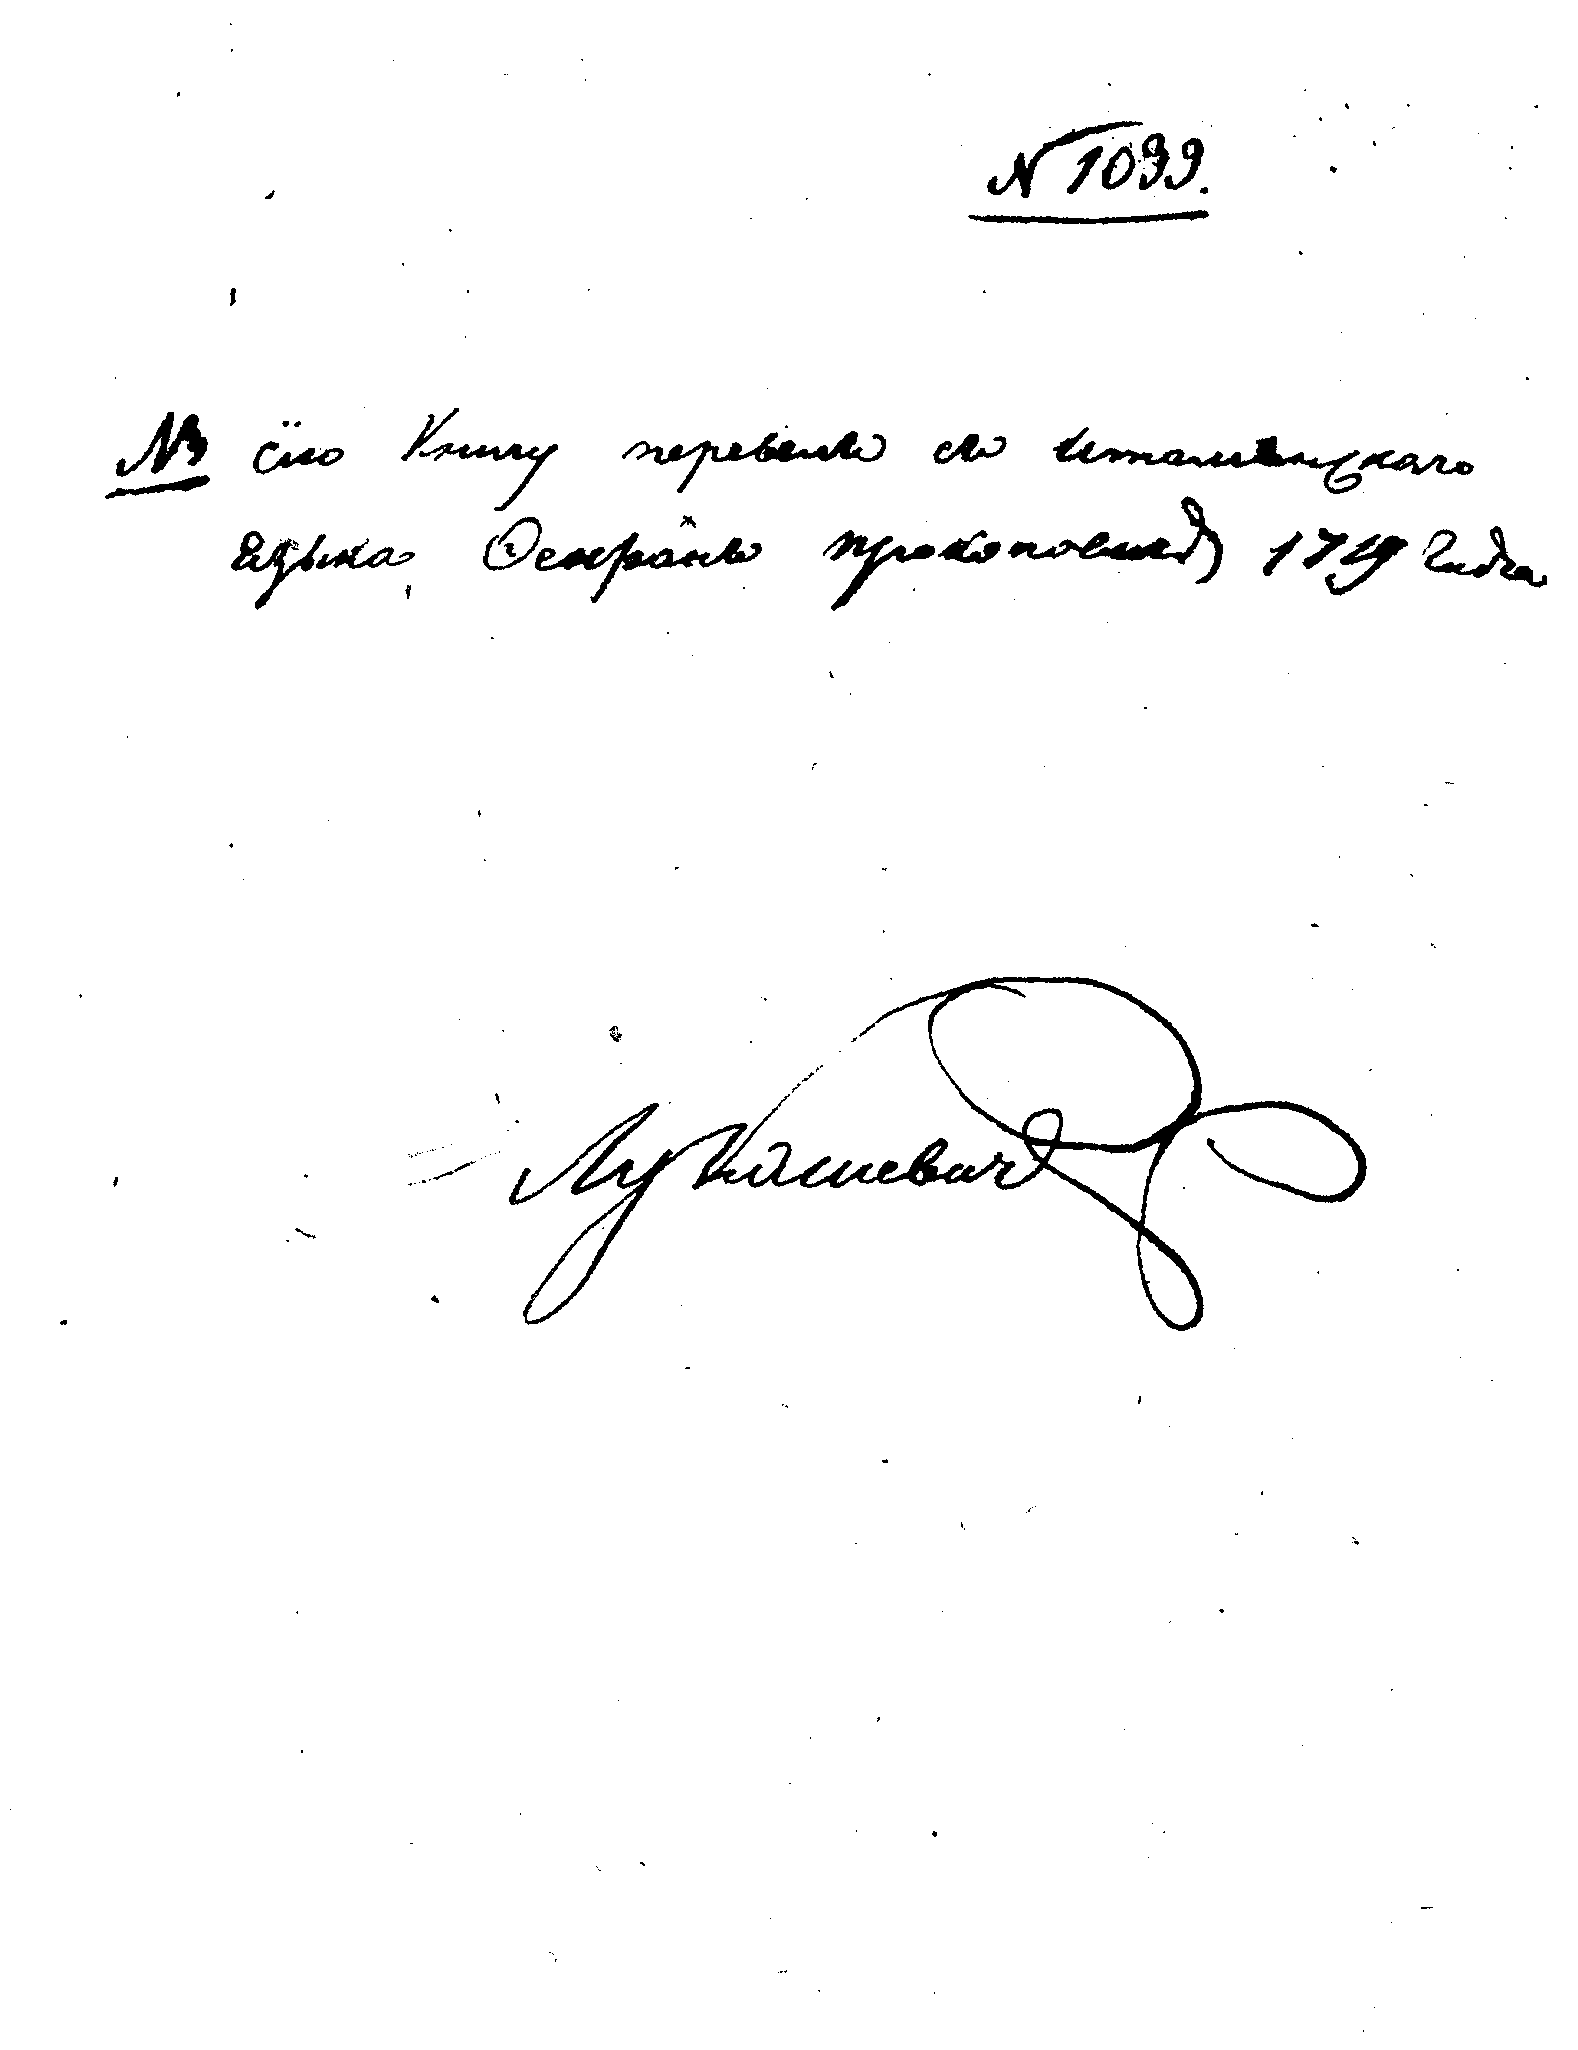 N 1099.
NB сїю Книгу перевелъ съ Италианскаго
Езыка Ѳеофанъ прокоповичъ 1719 Года
Лукашевичъ